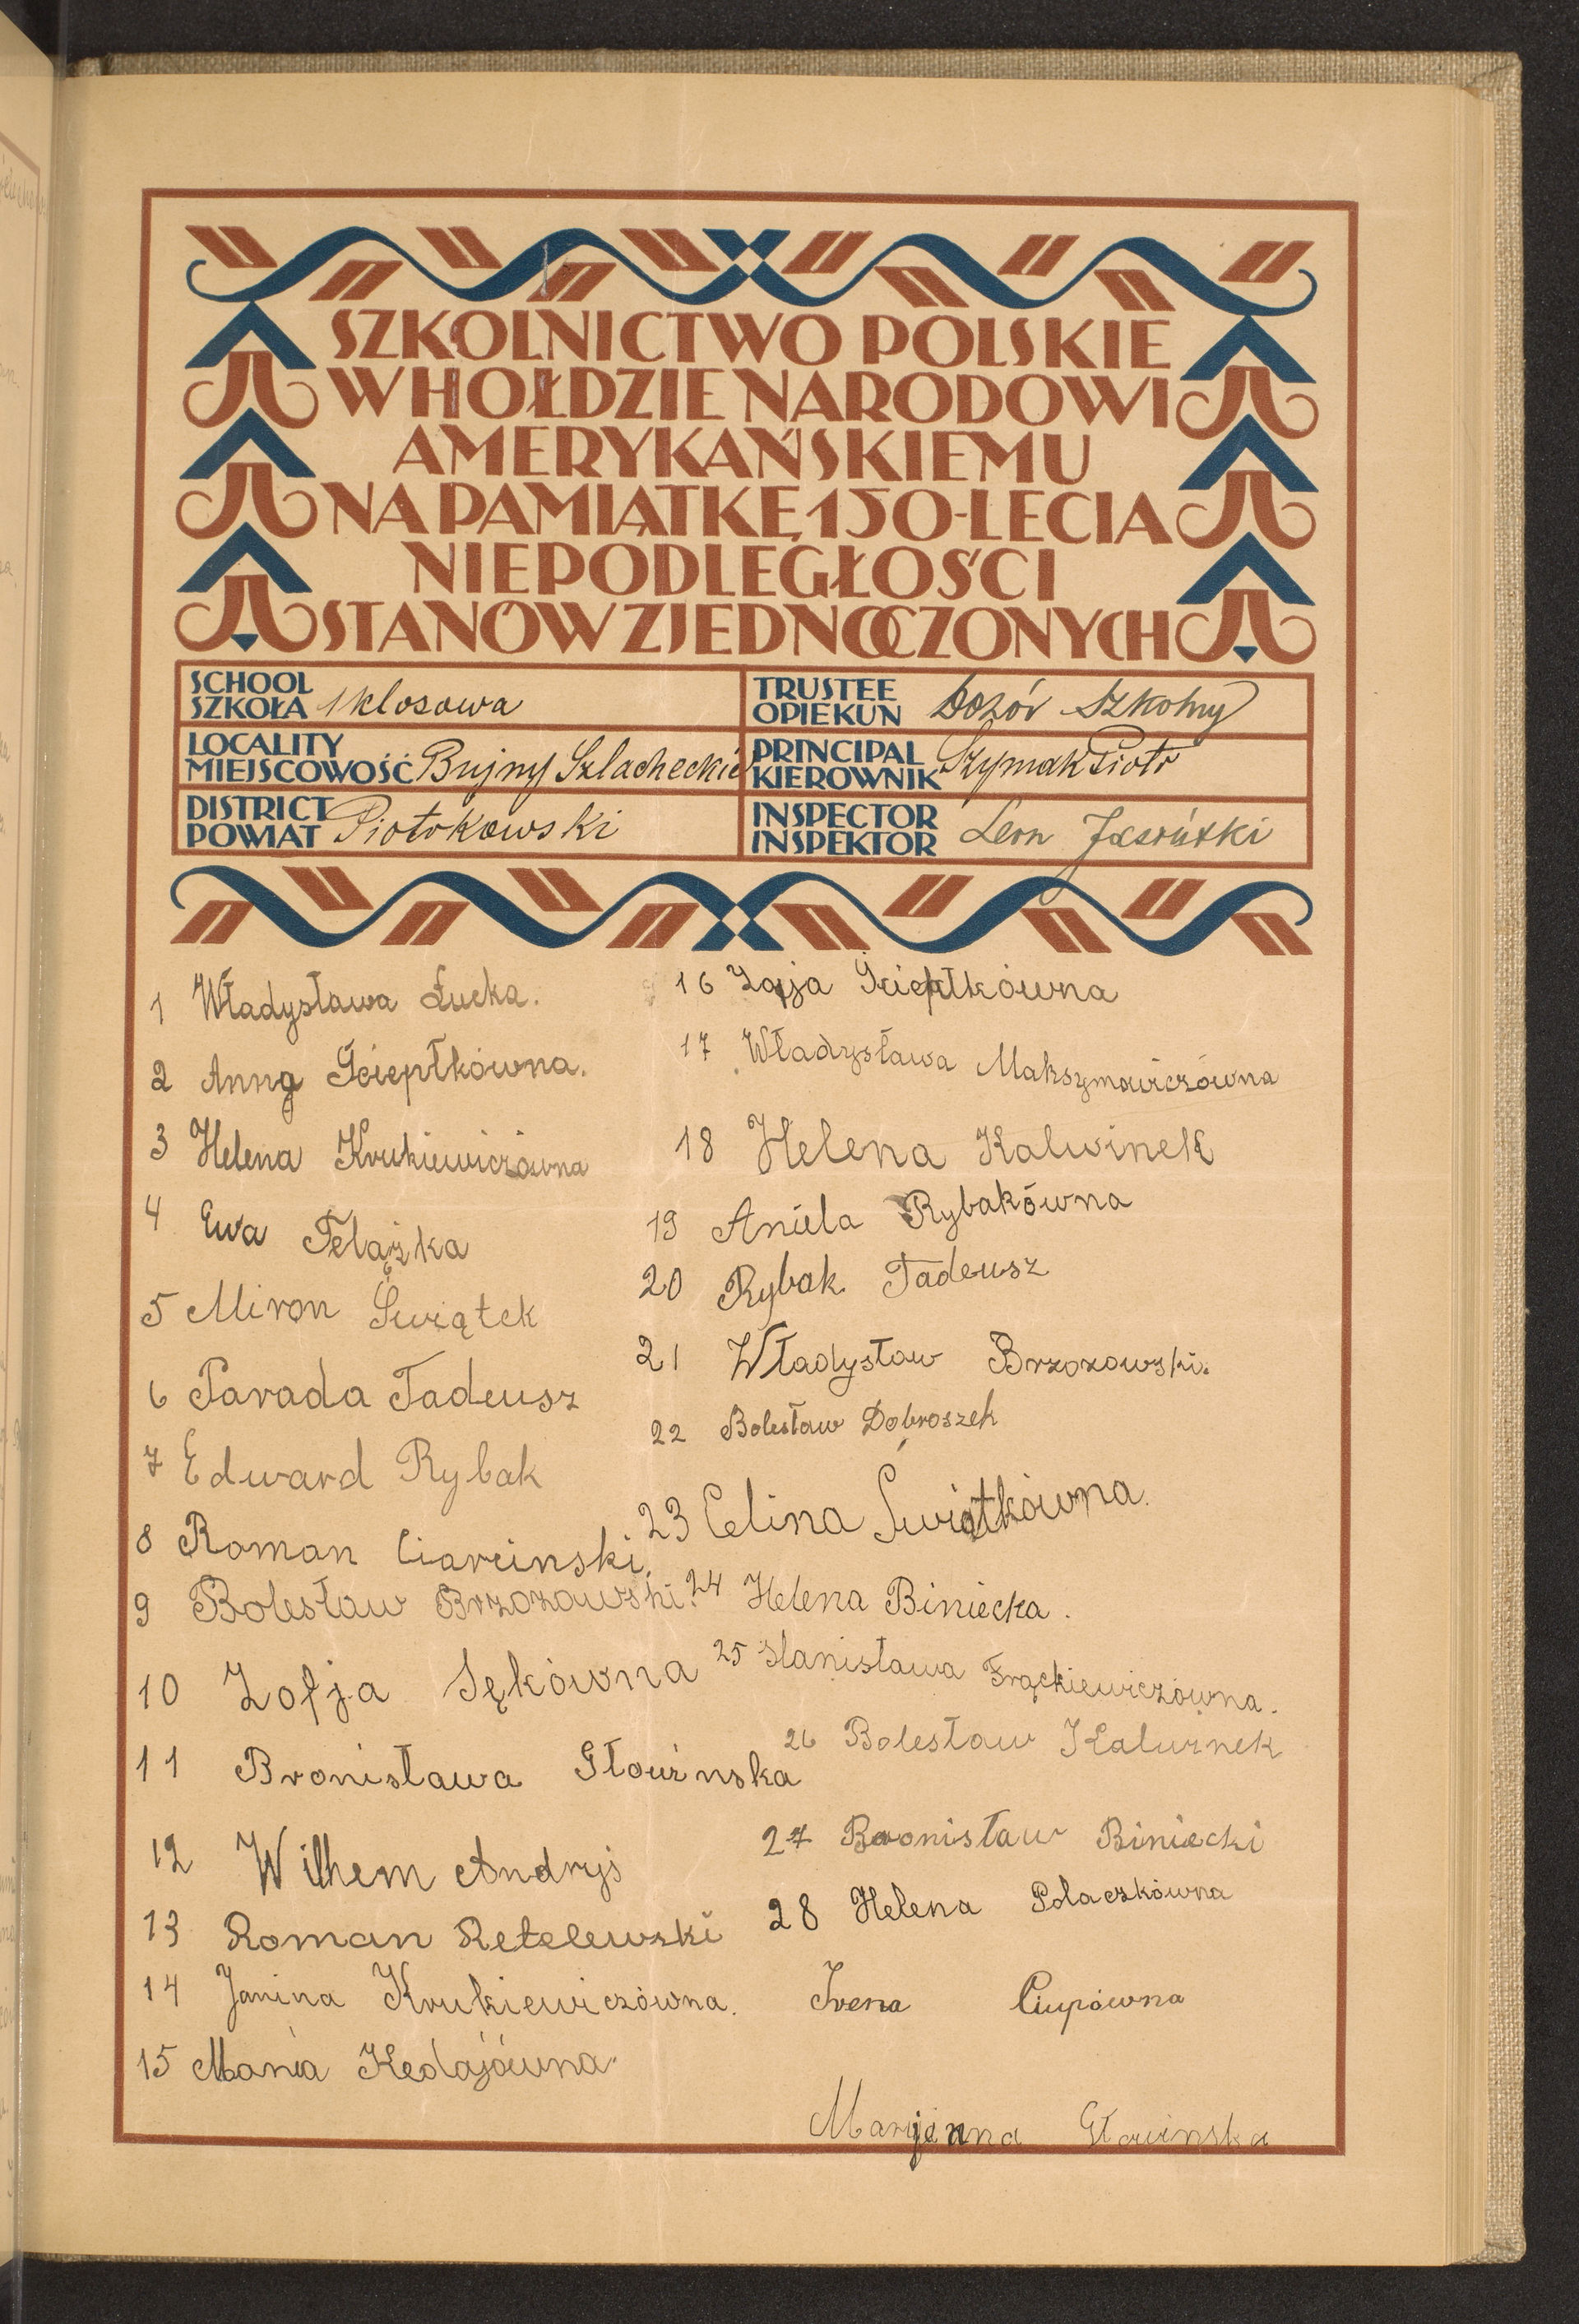 SZKOLNICTWO POLSKIE
W HOŁDZIE NARODOWI
AMERYKAŃSKIEMU
NA PAMIĄTKĘ 150-LECIA
NIEPODLEGŁOŚCI
STANÓW ZJEDNOCZONYCH
SCHOOL
SZKOŁA 1 klosowa
TRUSTEE
OPIEKUN Dozór Szkolny
LOCALITY
MIEJSCOWOŚĆ Bujny Szlacheckie
PRINCIPAL
KIEROWNIK Szymak Piotr
DISTRICT
POWIAT Piotrkowski
INSPECTOR
INSPEKTOR Leon
1 Władysława Łucka.
2 Anna Ściepłkówna.
3 Helena Krukiewiczówna
4 Ewa Felążka
5 Miron Świątek
6 Parada Tadeusz
7 Edward Rybak
8 Roman Ciarcinski.
9 Bolesław Brzozowski.
10 Zofja Sękówna
11 Bronisława Głowinska
12 Wilhem Andryś
13 Roman Retelewski
14 Janina Krukiewiczówna.
15 Mania Kędajówna
16 Zofja Ściepłkówna
17 Władysława Maksymowiczówna
18 Helena Kalwinek
19 Aniela Rybakówna
20 Rybak Tadeusz
21 Władysław Brzozowski.
22 Bolesław Dobroszek
23 Celina Świątkówna.
24 Helena Biniecka.
25 Stanisława Frąckiewiczówna.
26 Bolesław Kalwinek
27 Bronisław Biniecki
28 Helena Polaczkówna
Irena Ciupówna
Marijanna Głowinska